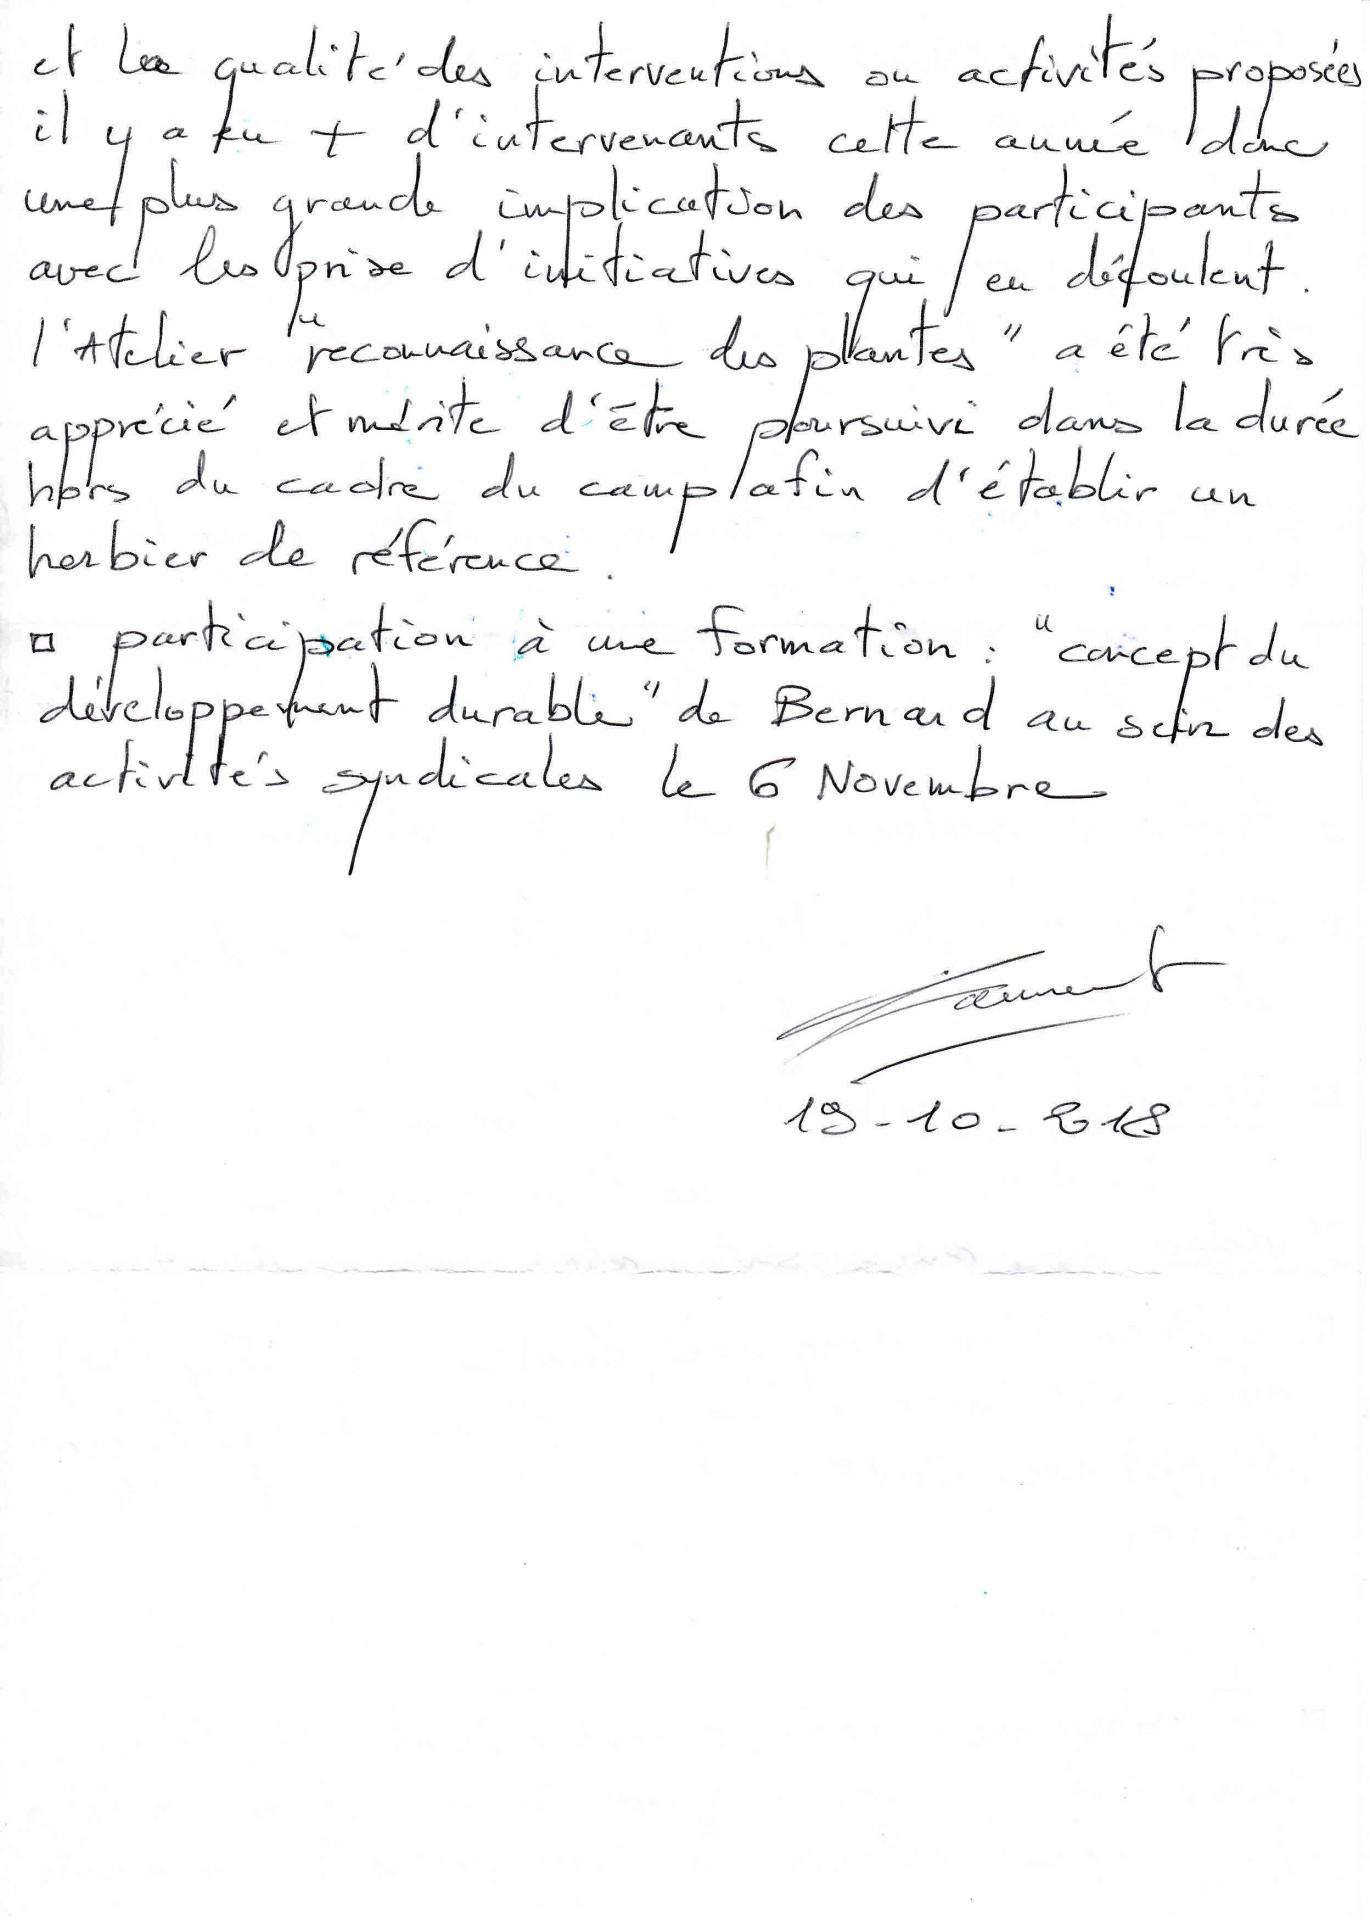 et la qualité des interventions ou activités proposées
il y a eu + d'intervenants cette année donc
une plus grande implication des participants
avec les prise d'initiatives qui en découlent.
l'Atelier "reconnaissance des plantes" a été très
apprécié et mérite d'être poursuivi dans la durée
hors du cadre du camp afin d'établir un
herbier de référence.
□ participation à une formation : "concept du
développement durable" de Bernard au sein des
activités syndicales le 6 Novembre
Laurent
19-10-2018